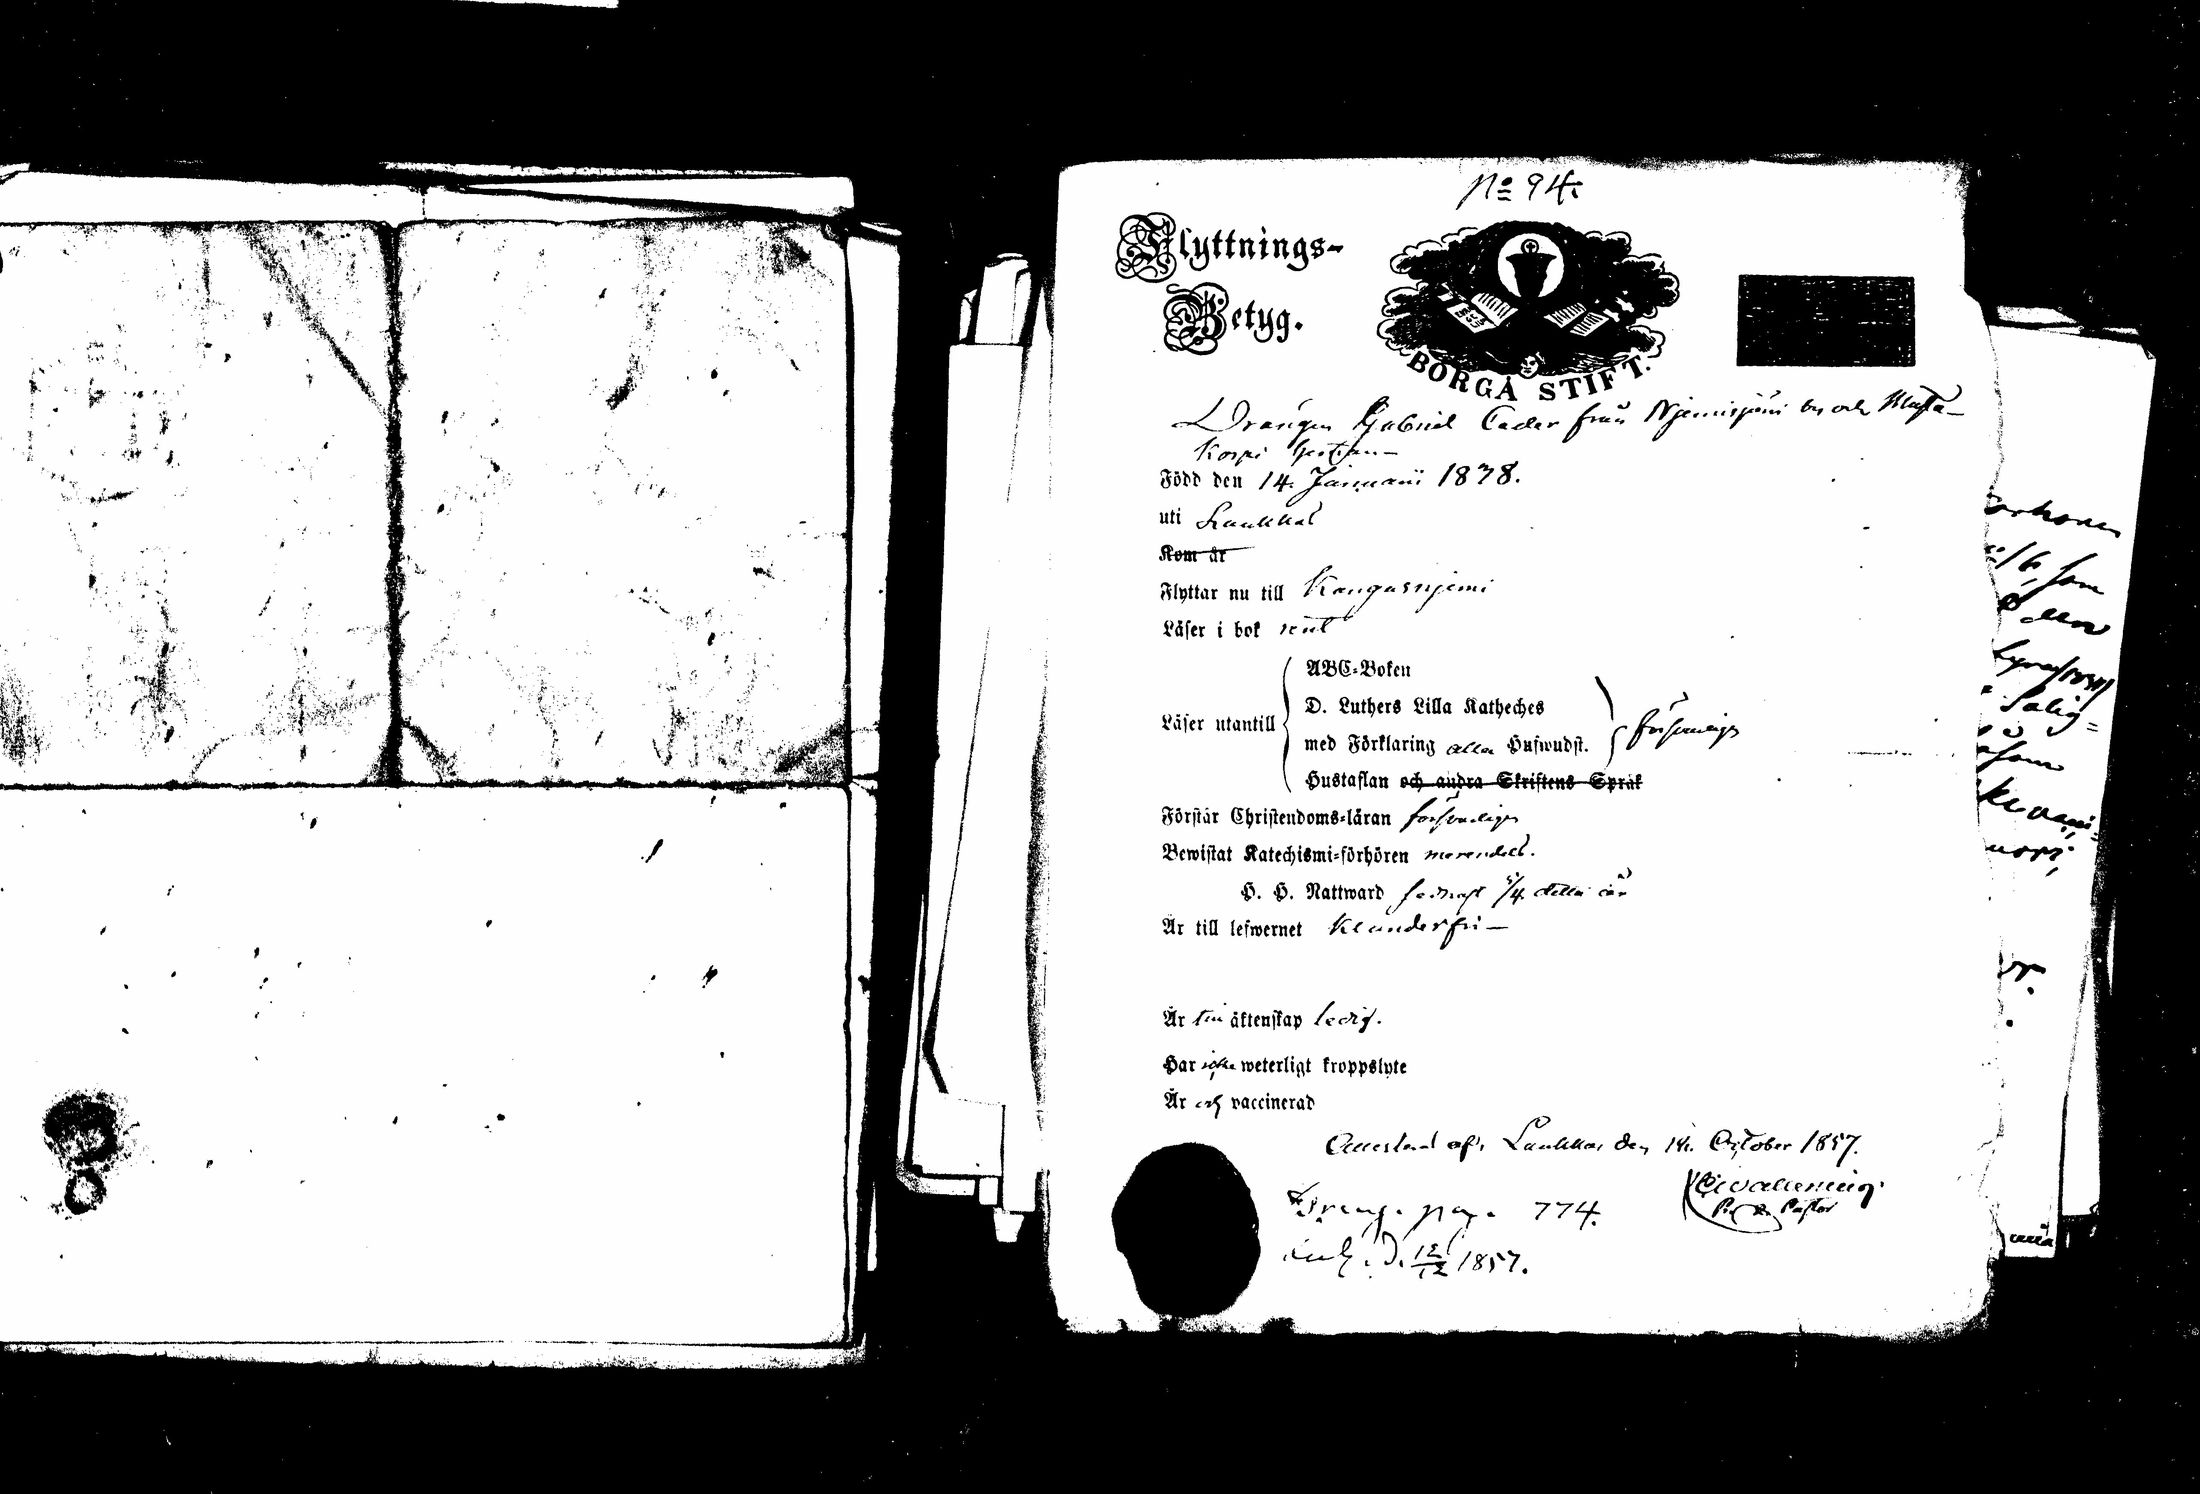 No 94.
Flyttnings-
Betyg.
BORGÅ STIFT.
Drängen Gabriel Cader från Njemisjärvi by och Musta-
korpi hemman
Född den 14. Januarii 1838.
uti Laukkas
Kom år
Flyttar nu till Kangasnjemi
Läser i bok rent
ABC-Boken
D. Luthers Lilla Katheches
Läser utantill
med Förklaring alla Hufwudst.
försvarligt
Hustaflan och andra Skriftens Språk
Förstår Christendoms-läran försvarligt
Bewistat Katechismi-förhören merendels.
H. H. Nattward sednast /4 detta år
Är till lefwernet klanderfri
Är till äktenskap ledig.
Har icke weterligt kroppslyte
Är och vaccinerad
af Laukkas den 14. October 1857.
Pastor
pag. 774.
d. 12/12 1857.